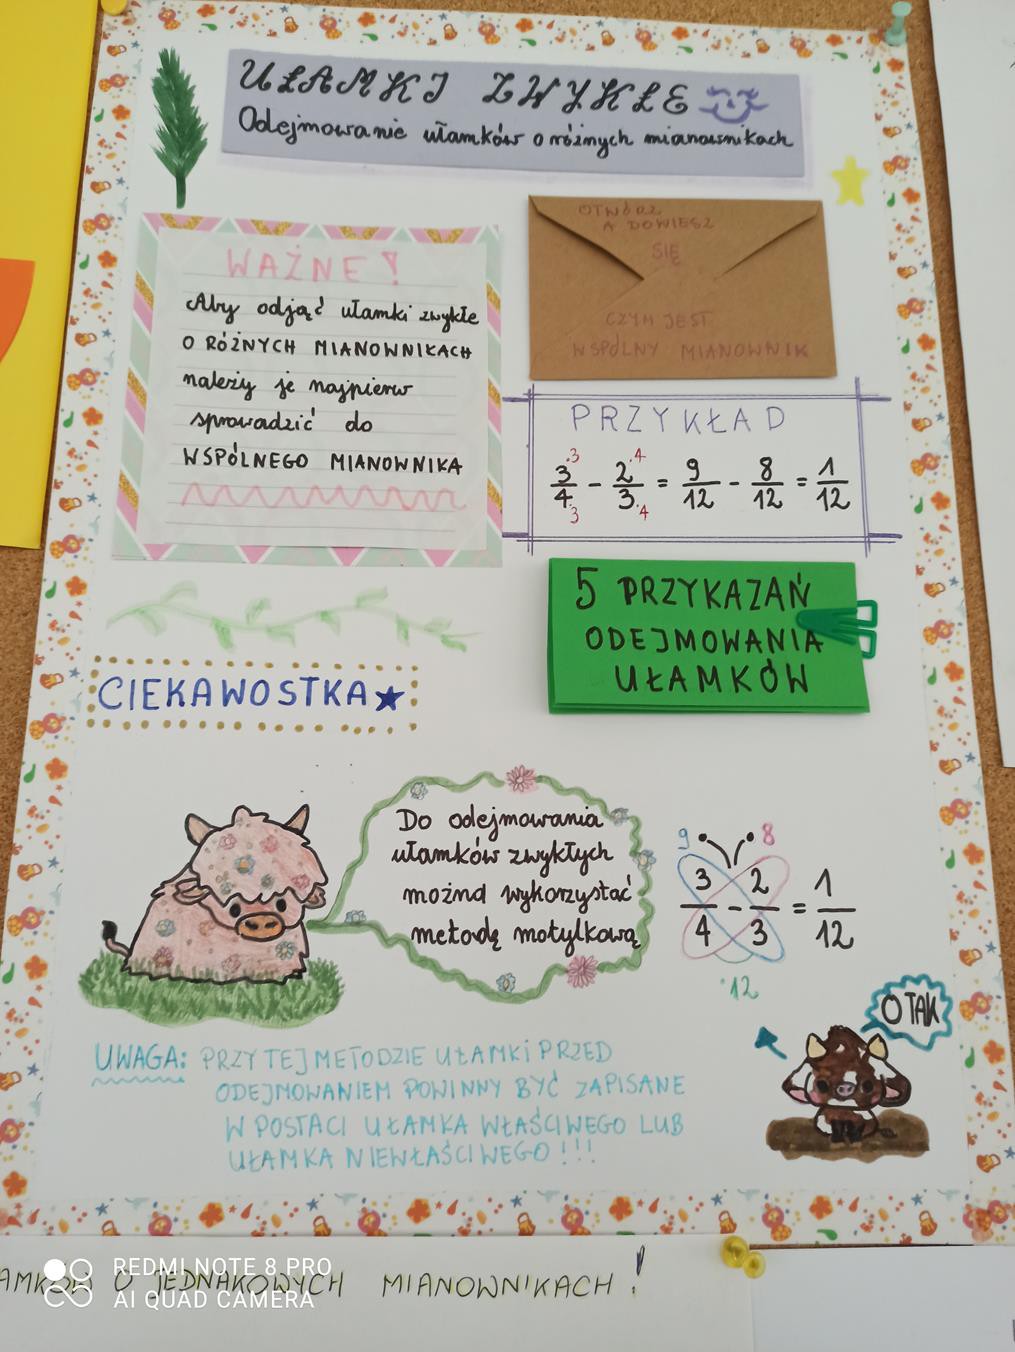 UŁAMKI ZWYKŁE
Odejmowanie ułamków o różnych mianownikach
WAŻNE!
Aby odjąć ułamki zwykłe
O RÓŻNYCH MIANOWNIKACH
należy je najpierw
sprowadzić do
WSPÓLNEGO MIANOWNIKA
OTWÓRZ
A DOWIESZ
SIĘ
CZYM JEST
WSPÓLNY MIANOWNIK
PRZYKŁAD
3·3/4·3 - 2·4/3·4 = 9/12 - 8/12 = 1/12
5 PRZYKAZAŃ
ODEJMOWANIA
UŁAMKÓW
CIEKAWOSTKA★
Do odejmowania
ułamków zwykłych
można wykorzystać
metodę motylkową
9 8
3/4 - 2/3 = 1/12
·12
UWAGA: PRZY TEJ METODZIE UŁAMKI PRZED
ODEJMOWANIEM POWINNY BYĆ ZAPISANE
W POSTACI UŁAMKA WŁAŚCIWEGO LUB
UŁAMKA NIEWŁAŚCIWEGO!!!
O TAK
AMKÓW O JEDNAKOWYCH MIANOWNIKACH!
REDMI NOTE 8 PRO
AI QUAD CAMERA